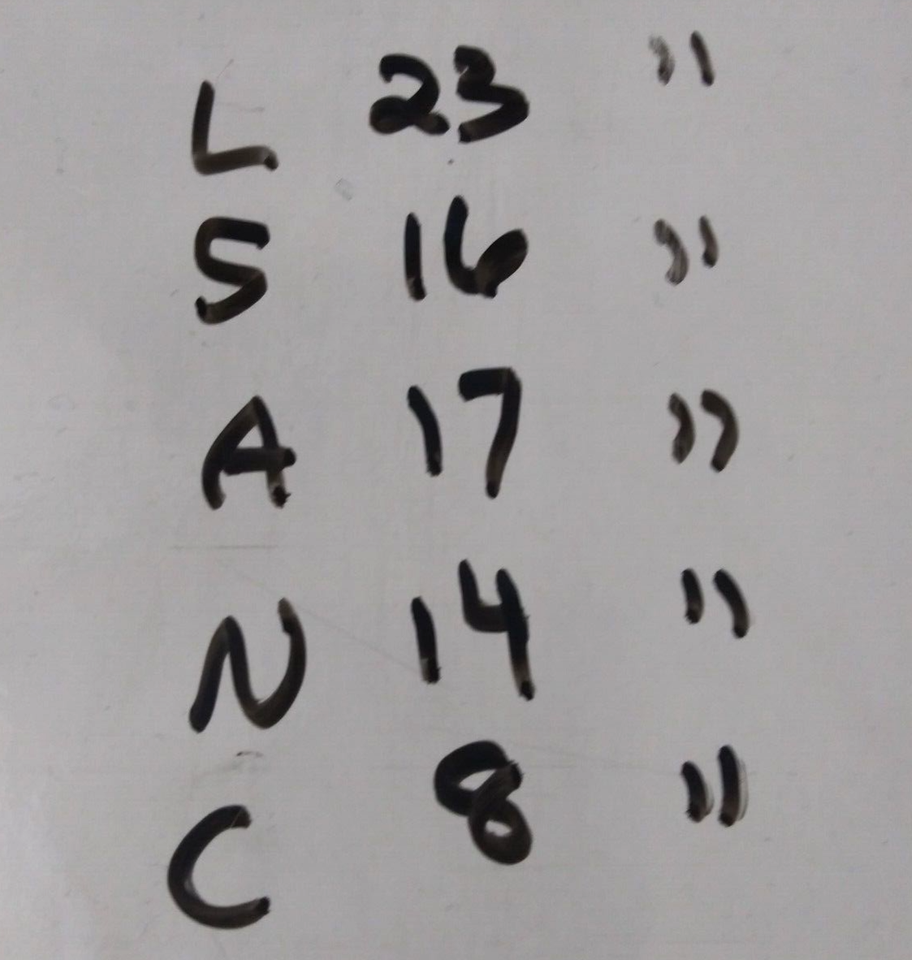 L 23 "
S 16 "
A 17 "
N 14 "
C 8 "